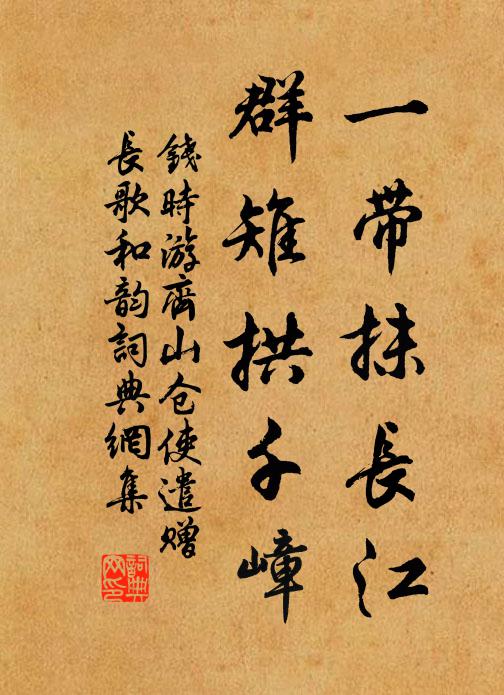 一帶抹長江
群雉拱千嶂
錢時游齊山仓使遣贈
長歌和韵詞典網集
詞典网印